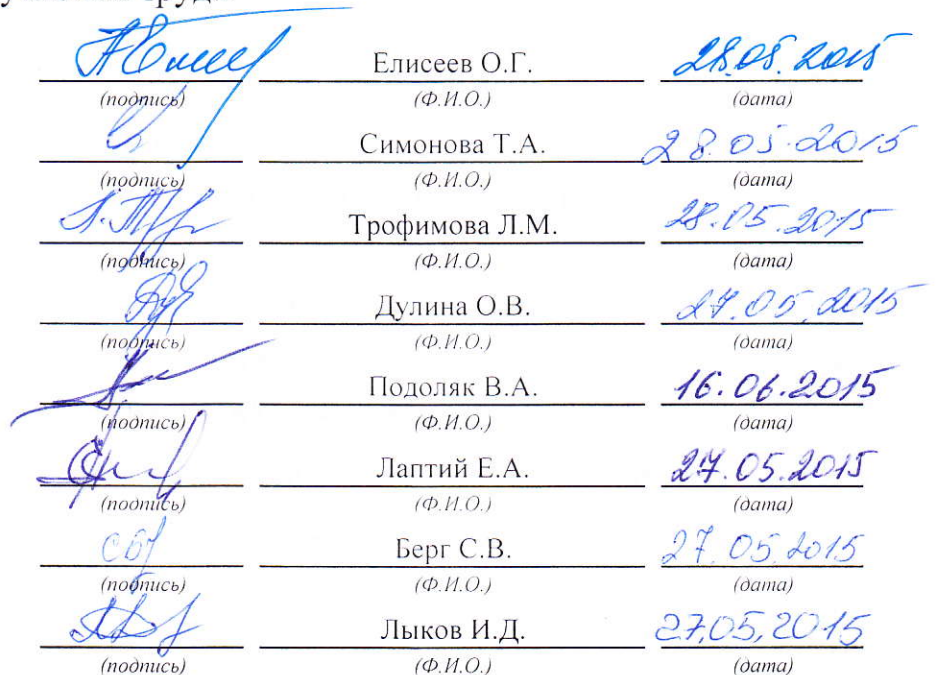 Елисеев О.Г. 28.05.2015
(подпись) (Ф.И.О.) (дата)
Симонова Т.А. 28.05.2015
(подпись) (Ф.И.О.) (дата)
Трофимова Л.М. 28.05.2015
(подпись) (Ф.И.О.) (дата)
Дулина О.В. 27.05.2015
(подпись) (Ф.И.О.) (дата)
Подоляк В.А. 16.06.2015
(подпись) (Ф.И.О.) (дата)
Лаптий Е.А. 27.05.2015
(подпись) (Ф.И.О.) (дата)
Берг С.В. 27.05.2015
(подпись) (Ф.И.О.) (дата)
Лыков И.Д. 27.05.2015
(подпись) (Ф.И.О.) (дата)